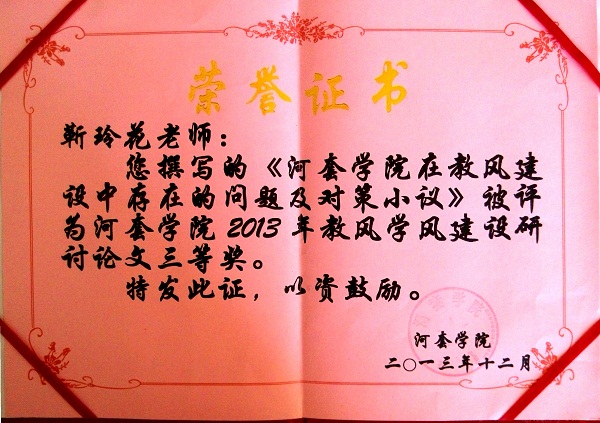 荣誉证书
靳玲花老师：
您撰写的《河套学院在教风建
设中存在的问题及对策小议》被评
为河套学院2013年教风学风建设研
讨论文三等奖。
特发此证，以资鼓励。
河套学院
二〇一三年十二月